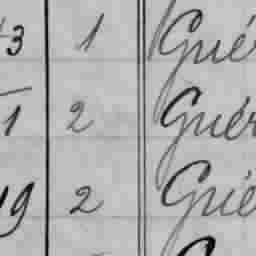 3 1 Gué
1 2 Guér
19 2 Gué